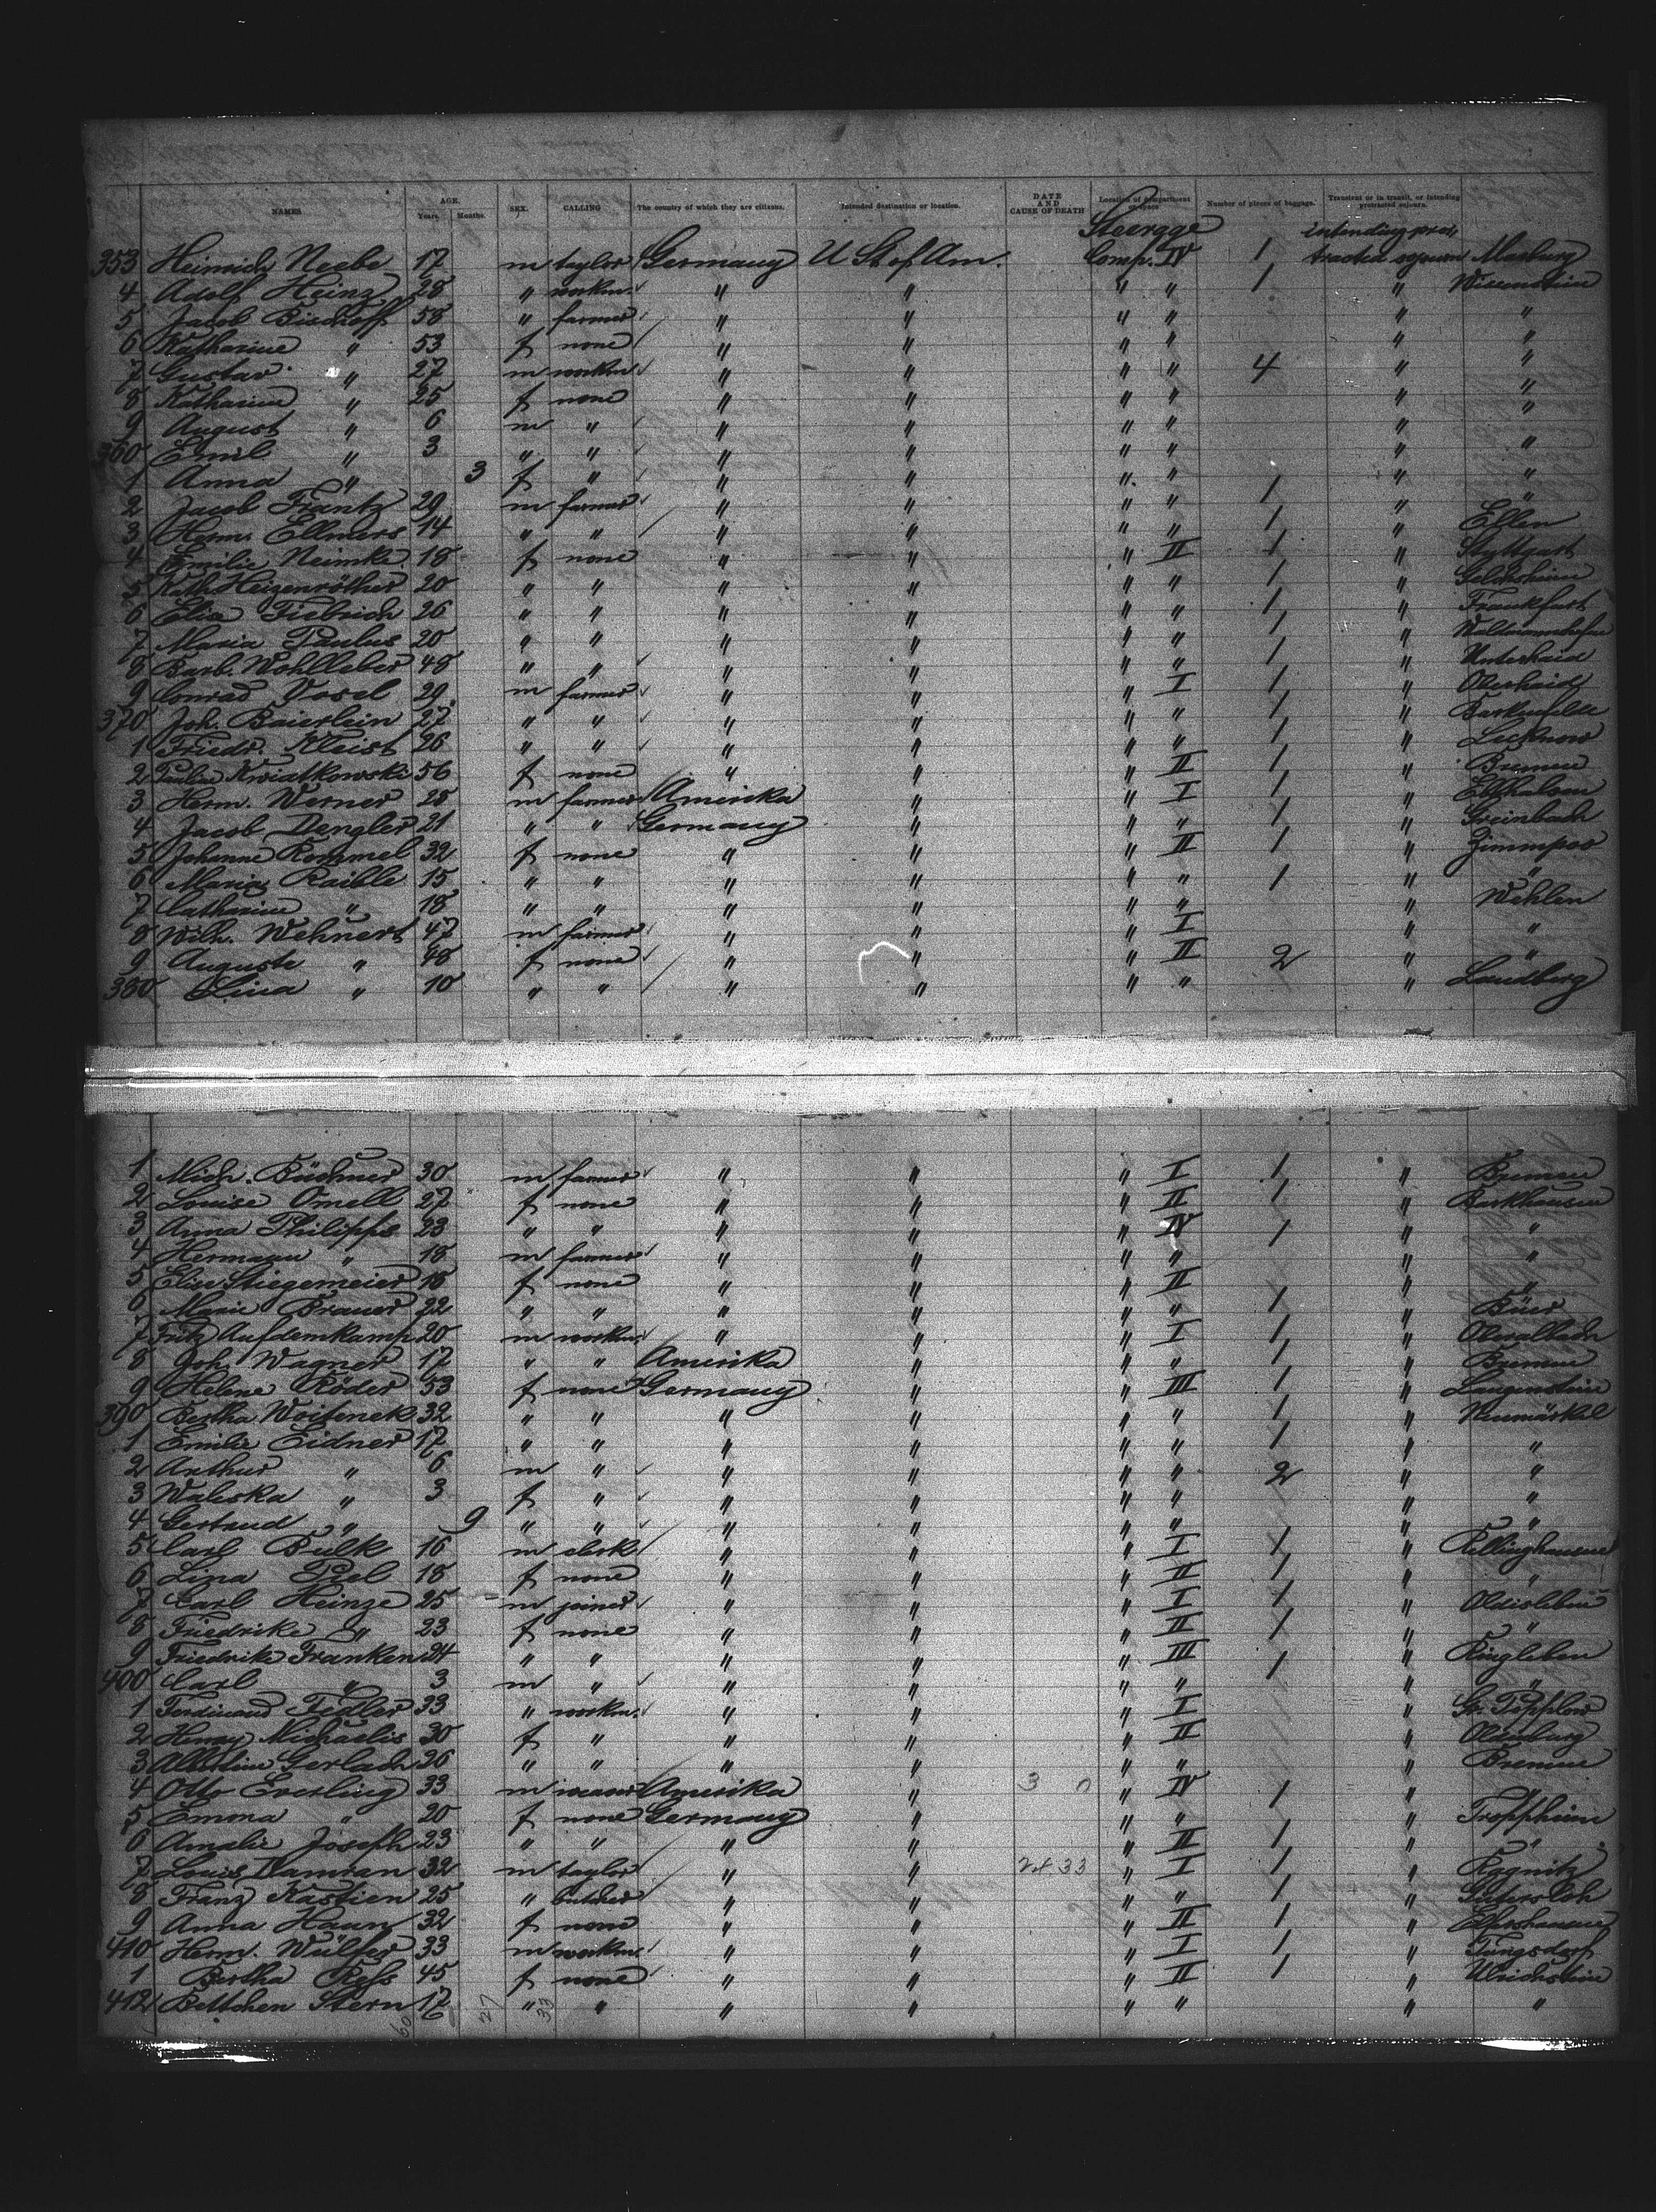 NAMES AGE. Years. Months. SEX. CALLING The country of which they are citizens. Intended destination or location. DATE AND CAUSE OF DEATH Location of compartment or space Number of pieces of baggage. Transient or in transit, or intending protracted sojourn.
Steerage intending pro-
353 Heinrich Neebe 17 m taylor Germany U St. of Am. Comp. IV 1 tracted sojourn Marburg
4 Adolf Heinz 28 " workm. " " " " 1 "
5 Jacob Bischoff 58 " farmer " " " " " "
6 Katharine " 53 f none " " " " " "
7 Gustav " 27 m workm. " " " " 4 " "
8 Katharine " 25 f none " " " " " "
9 August " 6 m " " " " " " "
360 Emil " 3 " " " " " " " "
1 Anna " 3 f " " " " " " "
2 Jacob Frantz 29 m farmer " " " " 1 " "
3 Herm. Ellmers 14 " " " " " " 1 " Ellen
4 Emilie Neimke 18 f none " " " II 1 " Stuttgart
5 Kath. Heizenröther 20 " " " " " " 1 "
6 Elise Fielrich 26 " " " " " " 1 " Frankfurt
7 Maria Paulus 20 " " " " " " 1 "
8 Barb. Wohlleber 48 " " " " " " 1 " Unterhaid
9 Conrad Vosel 29 m farmer " " " I 1 " Oberhaid
370 Joh. Baierlein 27 " " " " " " 1 "
1 Friedr. Kleist 26 " " " " " " 1 "
2 Pauline Kwiatkowski 56 f none " " " II 1 " Bremen
3 Herm. Werner 25 m farmer Amerika " " I 1 "
4 Jacob Dengler 21 " " Germany " " " 1 " Greinbach
5 Johanne Rommel 32 f none " " " II 1 "
6 Maria Raible 15 " " " " " " 1 " "
7 Catharine " 18 " " " " " " " Wehlen
8 Wilh. Wehnert 47 m farmer " " " I " "
9 Auguste " 48 f none " " " II 2 " "
380 Lina " 10 " " " " " " " Landberg
1 Mich. Büchner 30 m farmer " " " I 1 " Bremen
2 Louise Omell 27 f none " " " II 1 " Barkhausen
3 Anna Philipps 23 " " " " " IV 1 " "
4 Hermann " 18 m farmer " " " " " "
5 Elise Stiegemeier 18 f none " " " II " "
6 Marie Brauer 22 " " " " " " 1 " Büer
7 Fritz Aufdemkamp 20 m workm. " " " I 1 "
8 Joh. Wagner 17 " " Amerika " " " 1 " Bremen
9 Helene Röder 53 f none Germany " " III 1 " Langenstein
390 Bertha Woitenek 32 " " " " " " 1 "
1 Emilie Eidner 17 " " " " " " 1 " "
2 Arthur " 6 m " " " " " 2 " "
3 Waleska " 3 f " " " " " " "
4 Gertraud " 9 " " " " " " " "
5 Carl Bulk 16 m clerk " " " I 1 "
6 Lina Piel 18 f none " " " II 1 " "
7 Carl Heinze 25 m joiner " " " I 1 " Oldisleben
8 Friedrike " 23 f none " " " II 1 " "
9 Friedrike Franken 24 " " " " " III 1 " Ringleben
400 Carl " 3 m " " " " " " "
1 Ferdinand Fedler 33 " workm. " " " I "
2 Henny Michaelis 30 f " " " " II " Oldenburg
3 Albertine Gerlach 36 " " " " " " " Bremen
4 Otto Everling 33 m Amerika " " IV 1 " "
5 Emma " 20 f none Germany " " " "
6 Amalie Joseph 23 " " " " " II 1 " "
7 Louis Damran 32 m taylor " " " I 1 " Ragnitz
8 Franz Kastien 25 " butcher " " " " 1 " Gütersloh
9 Anna Haun 32 f none " " " II 1 "
410 Herm. Wülfer 33 m workm. " " " I 1 "
1 Bertha Refs 45 f none " " " II 1 " Ulrichstein
412 Bettchen Stern 17 " " " " " " " "
60 27 33